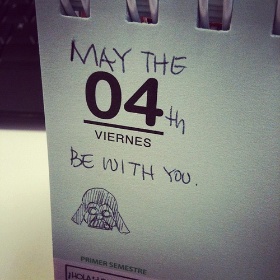 MAY THE
04th
VIERNES
BE WITH YOU.
PRIMER SEMESTRE